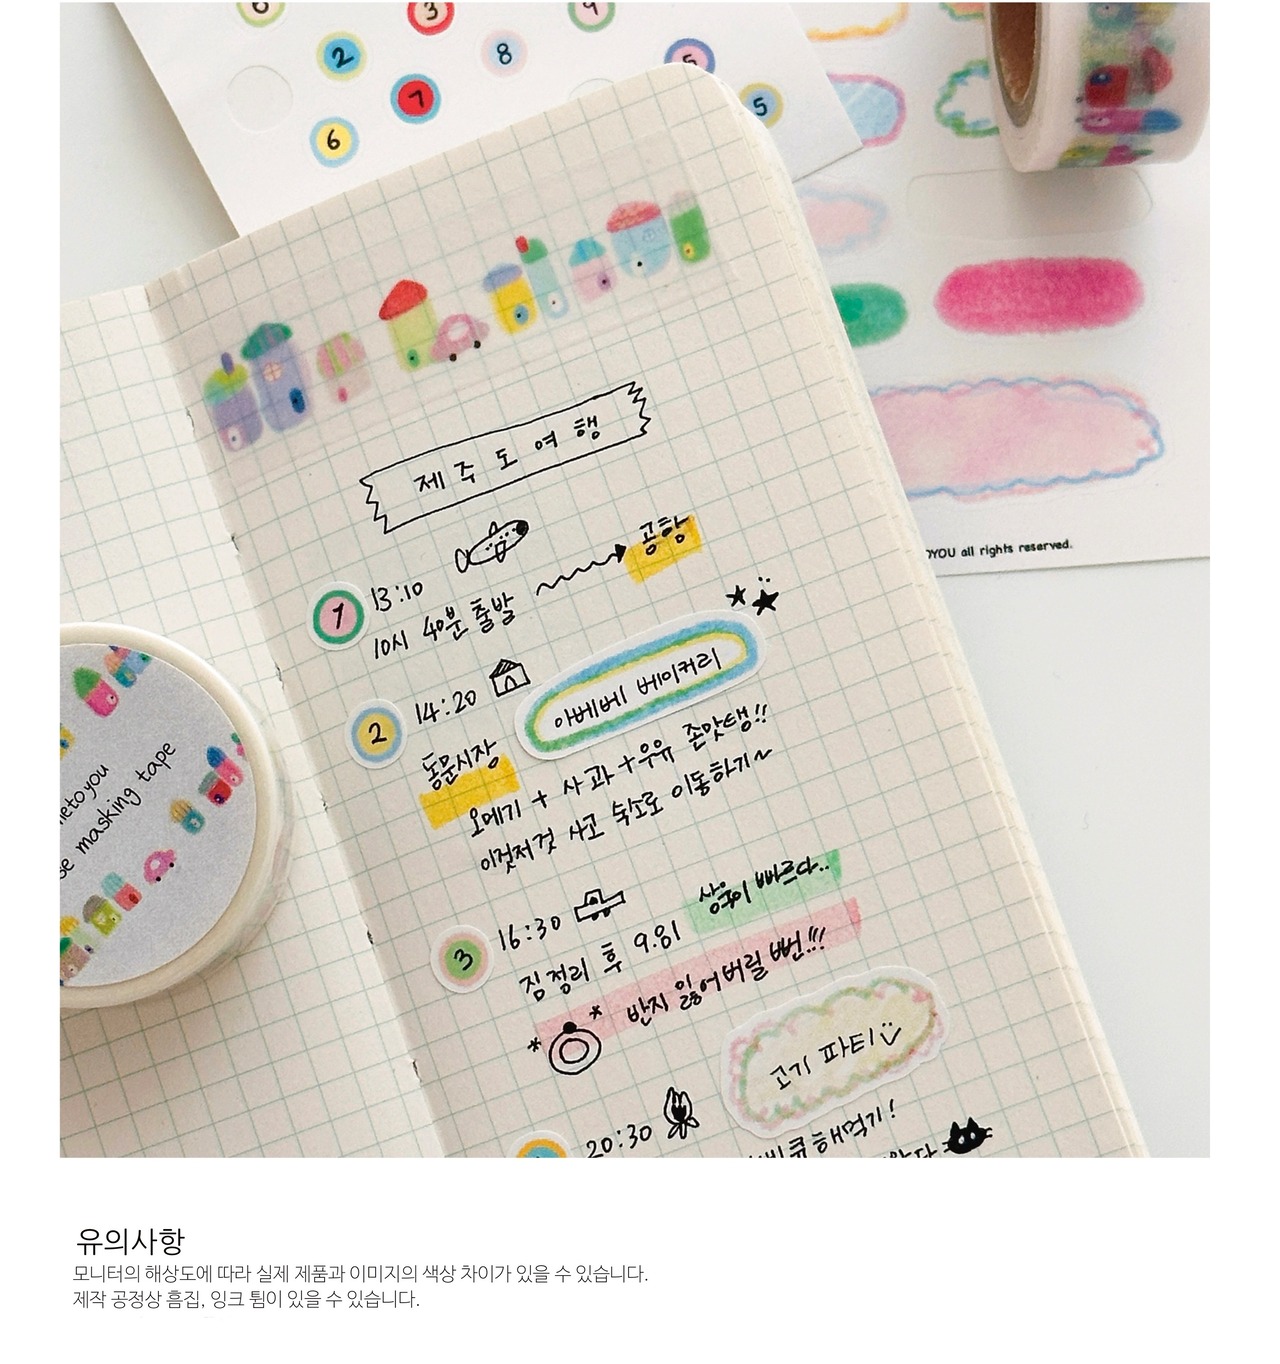 6
3
4
2
8
5
7
5
6
제주도여행
공항
1 13:10
10시 40분 출발
2 14:20
아베베 베이커리
동문시장
오메기 + 사과 + 우유 존맛탱!!
이것저것 사고 숙소로 이동하기~
3 16:30
짐정리 후 9.81 상욱이 빠르다..
반지 잃어버릴 뻔!!!
고기 파티
20:30
비큐 해먹기!
OYOU all rights reserved.
metoyou
masking tape
유의사항
모니터의 해상도에 따라 실제 제품과 이미지의 색상 차이가 있을 수 있습니다.
제작 공정상 흠집, 잉크 튐이 있을 수 있습니다.